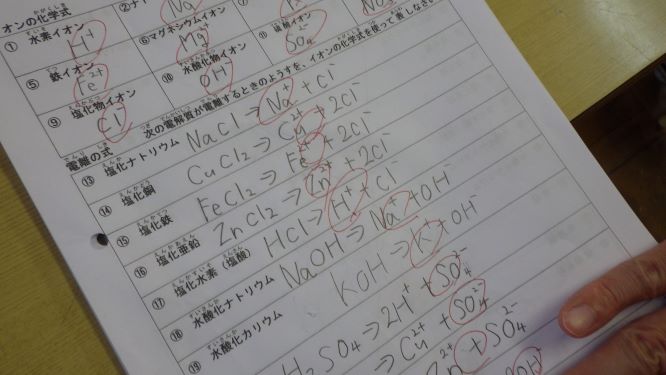 オンの化学式
① 水素イオン H⁺
②ナト Na
⑤ 鉄イオン Fe²⁺
⑥マグネシウムイオン Mg²⁺
⑨ 塩化物イオン Cl⁻
⑩ 水酸化物イオン OH⁻
⑪ 硫酸イオン SO₄²⁻
NO₃
電離の式 次の電解質が電離するときのようすを、イオンの化学式を使って表しなさい
⑬ 塩化ナトリウム NaCl⇒Na⁺+Cl⁻
⑭ 塩化銅 CuCl₂⇒Cu²⁺+2Cl⁻
⑮ 塩化鉄 FeCl₂⇒Fe²⁺+2Cl⁻
⑯ 塩化亜鉛 ZnCl₂⇒Zn²⁺+2Cl⁻
⑰ 塩化水素(塩酸) HCl⇒H⁺+Cl⁻
⑱ 水酸化ナトリウム NaOH⇒Na⁺+OH⁻
⑲ 水酸化カリウム KOH⇒K⁺+OH⁻
H₂SO₄⇒2H⁺+SO₄²⁻
⇒Cu²⁺+SO₄²⁻
²⁺+SO₄²⁻
OH